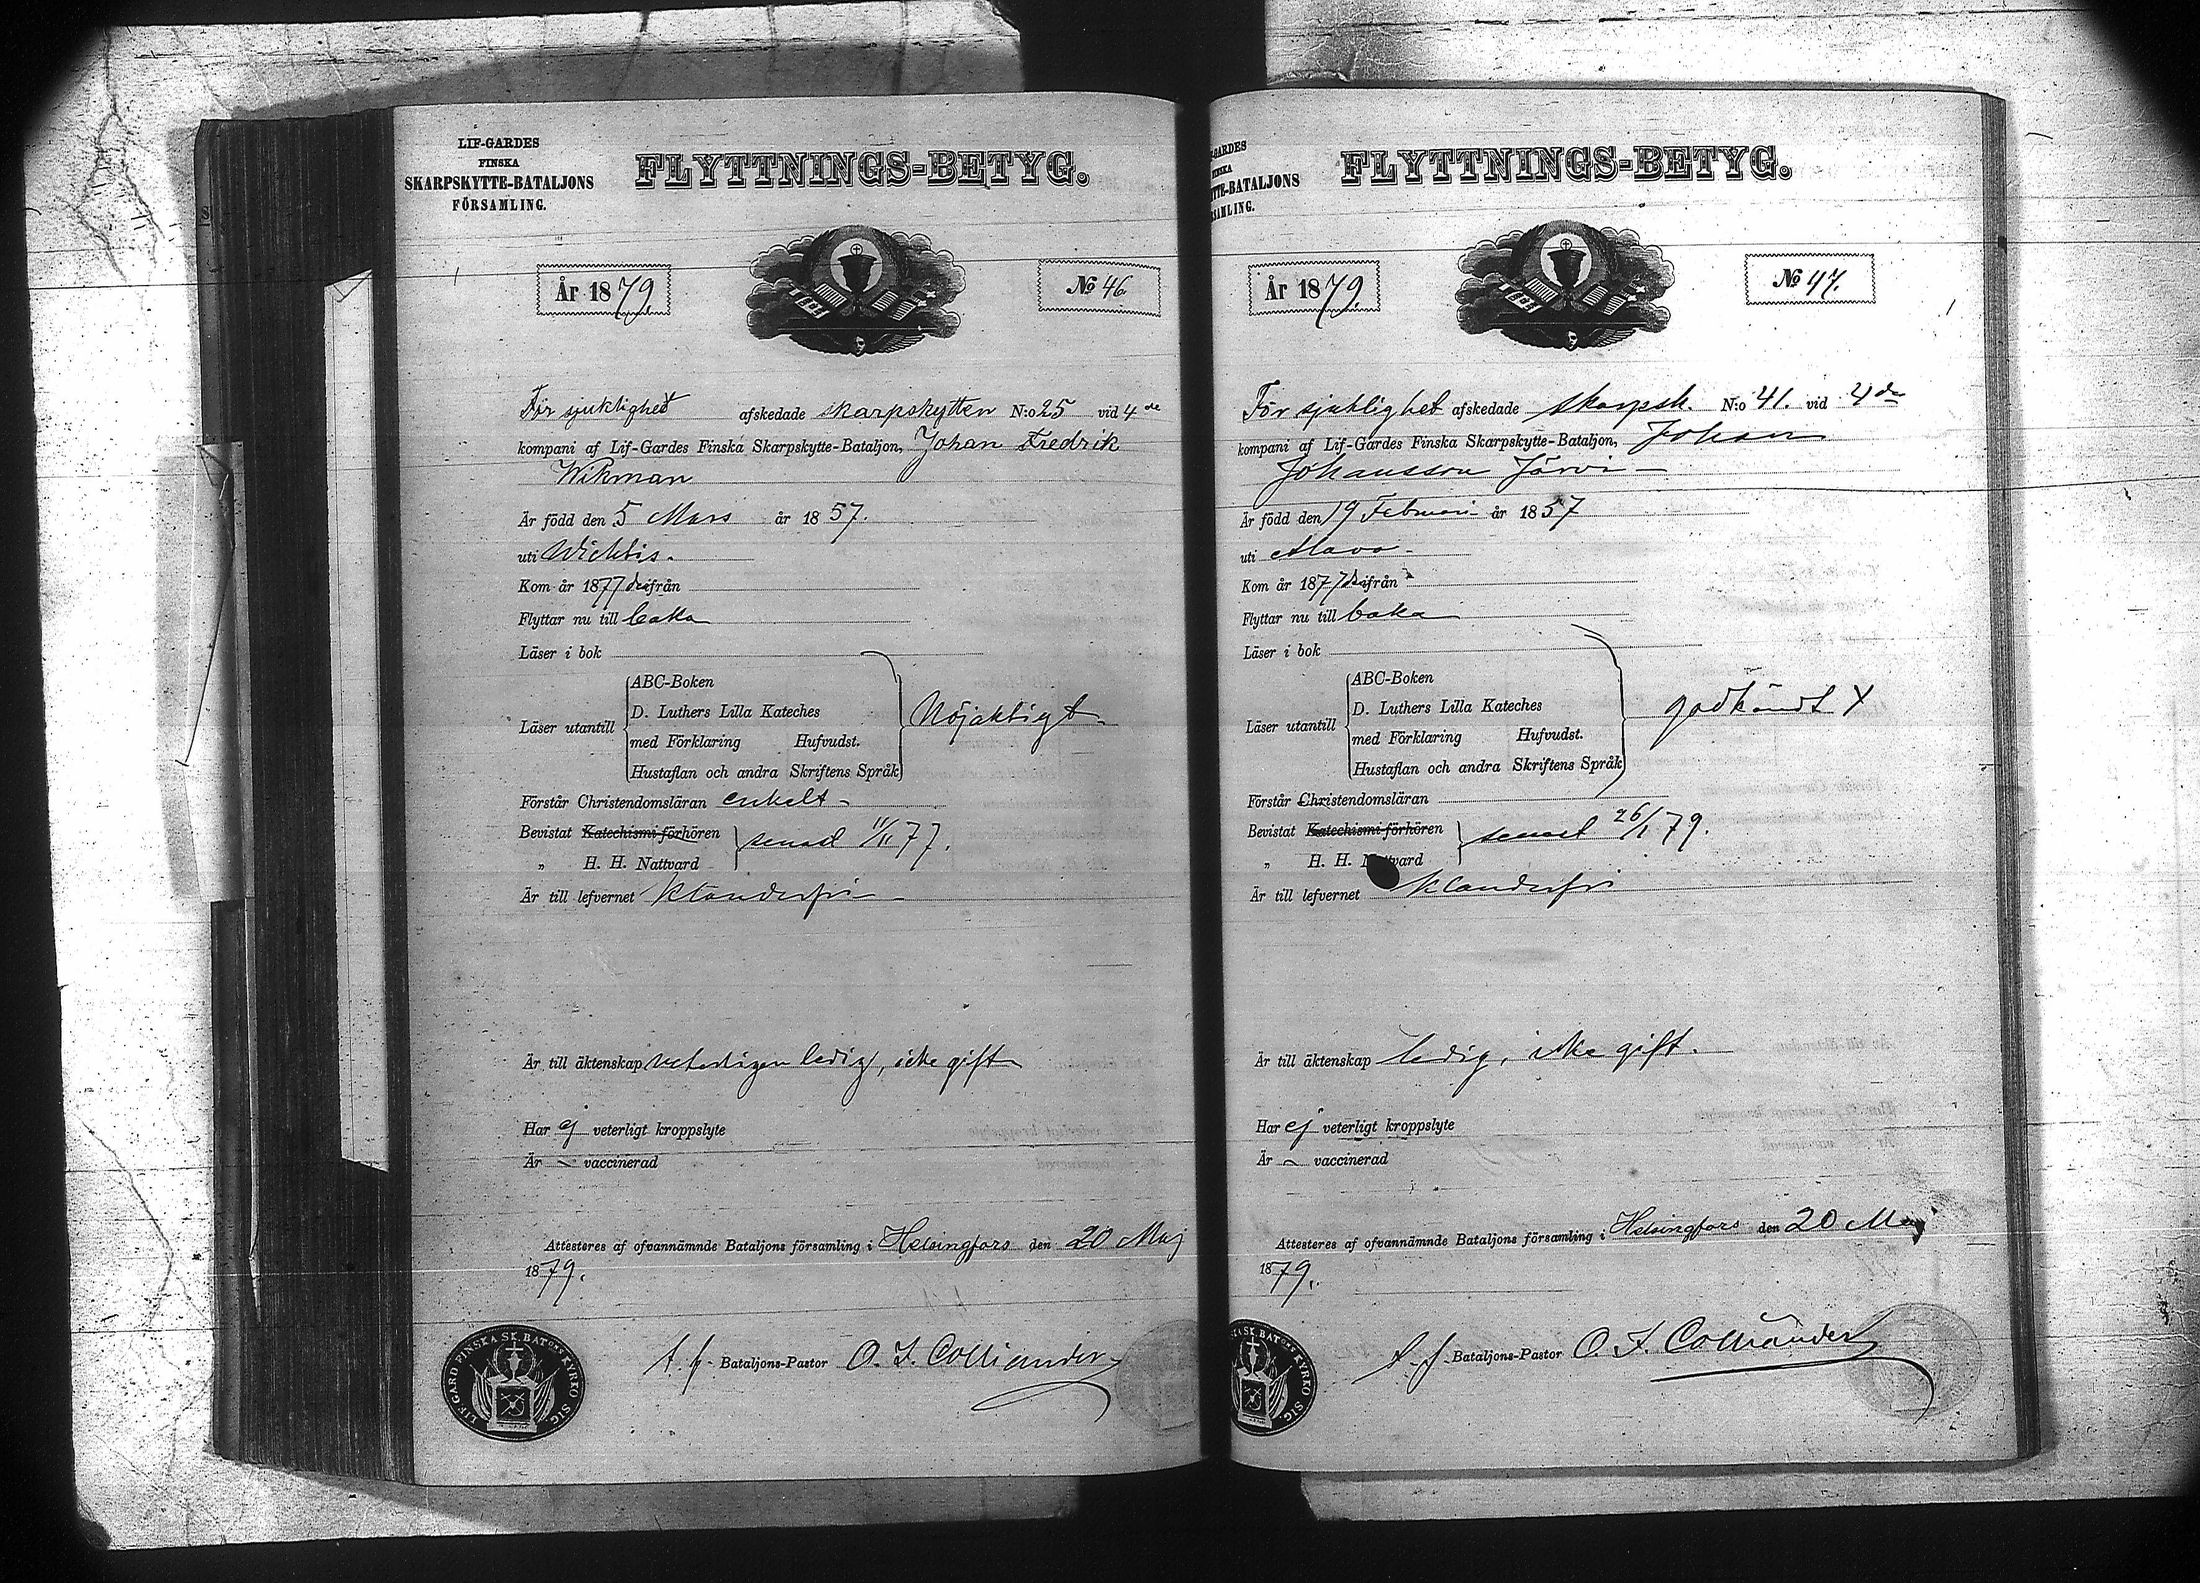 LIF-GARDES
FINSKA
SKARPSKYTTE-BATALJONS
FÖRSAMLING.
FLYTTNINGS-BETYG.
År 1879.
No 46
För sjuklighet afskedade skarpskytten N:o 25 vid 4de
kompani af Lif-Gardes Finska Skarpskytte-Bataljon, Johan Fredrik
Wikman
Är född den 5 Mars år 1857.
uti Wichtis.
Kom år 1877 derifrån
Flyttar nu till baka
Läser i bok
Läser utantill
ABC-Boken
D. Luthers Lilla Kateches
med Förklaring Hufvudst.
Hustaflan och andra Skriftens Språk
Nöjaktigt
Förstår Christendomsläran enkelt
Bevistat Katechismi-förhören
„ H. H. Nattvard
senast 11/11 77.
Är till lefvernet klanderfri
Är till äktenskap veterligen ledig, icke gift
Har ej veterligt kroppslyte
Är vaccinerad
Attesteras af ofvannämnde Bataljons församling i Helsingfors den 20 Maj
1879.
A. f. Bataljons-Pastor O. F. Colliander
LIF-GARD FINSKA SK. BATons KYRKO SIG.
GARDES
SKA
TTE-BATALJONS
SAMLING.
FLYTTNINGS-BETYG.
År 1879.
No 47.
För sjuklighet afskedade skarpsk. N:o 41. vid 4de
kompani af Lif-Gardes Finska Skarpskytte-Bataljon, Johan
Johansson Järvi
Är född den 19 Februari år 1857
uti Alavo
Kom år 1877 derifrån
Flyttar nu till baka
Läser i bok
Läser utantill
ABC-Boken
D. Luthers Lilla Kateches
med Förklaring Hufvudst.
Hustaflan och andra Skriftens Språk
godkändt
Förstår Christendomsläran
Bevistat Katechismi-förhören
„ H. H. Nattvard
senast 26/1 79.
Är till lefvernet klanderfri
Är till äktenskap ledig, icke gift.
Har ej veterligt kroppslyte
Är vaccinerad
Attesteras af ofvannämnde Bataljons församling i Helsingfors den 20 Maj
1879.
A. f. Bataljons-Pastor O. F. Colliander
SK. BATons KYRKO SIG.